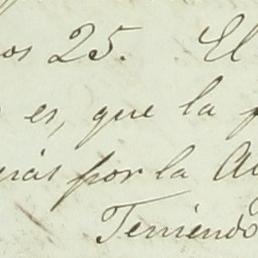 os 25. El
es, que la
por la
Teniendo